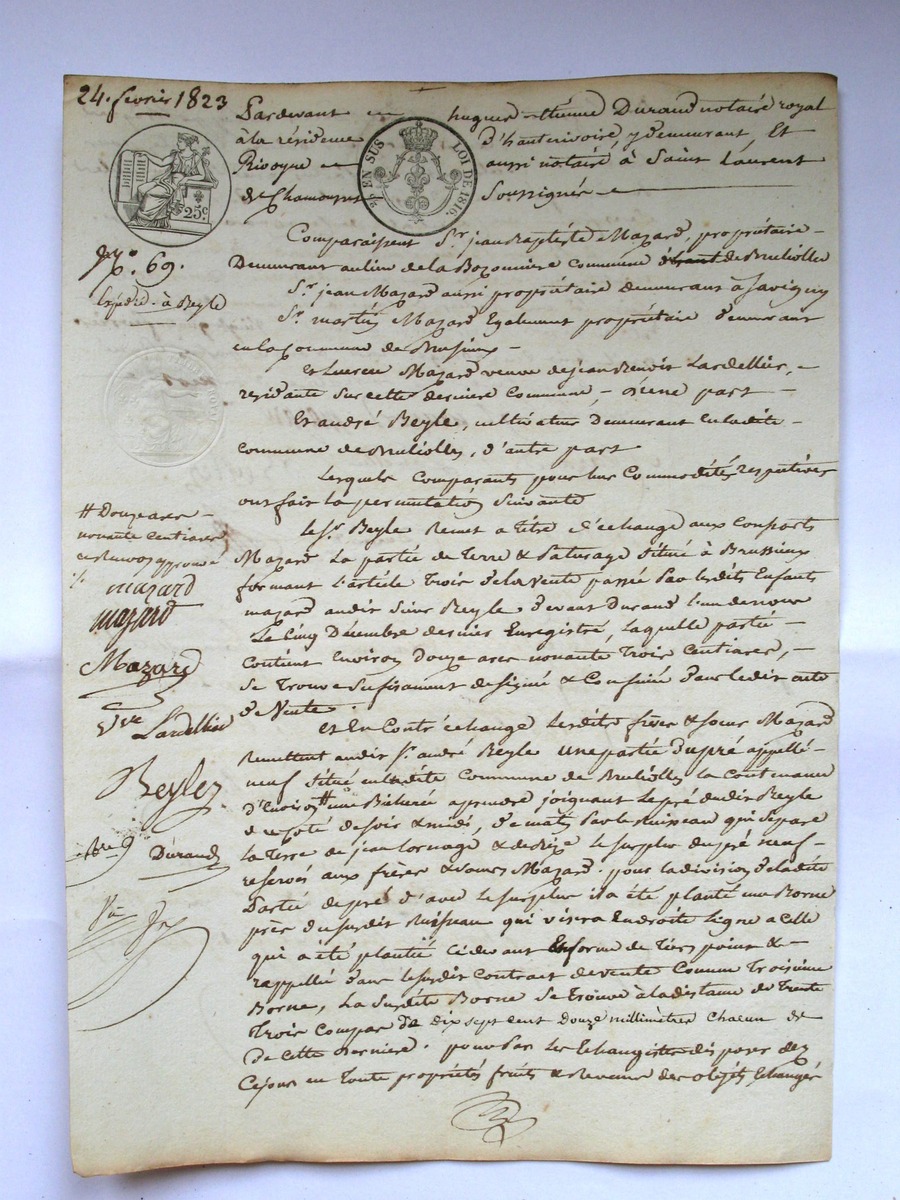 24. fevrier 1823
Pardevant hugues étienne Durand notaire royal
à la résidence d'hauterivoire, y demeurant, Et
Rivoyre aussi notaire à Saint Laurent
de Chamousset Soussignés
EN SUS LOI DE 1816.
25c
No. 69.
Expédié à Beyle
Comparaissent Sr. jean Baptiste Mazard, propriétaire
Demeurant au lieu de la Bozonniere commune de Bruliolles
Sr. jean Mazard aussi propriétaire demeurant à Savigny
Sr. martin Mazard Egalement propriétaire demeurant
en la commune de Brusieux
et Mazard veuve de jean Benoit Lardellier,
residante sur cette derniere Commune, d'une part
Et andré Beyle, cultivateur Demeurant en ladite
commune de Bruliolles, d'autre part
Lesquels Comparants pour leur Commodités respectives
ont fait la permutation Suivante
le Sr. Beyle Remet a titre d'échange aux Consorts
Mazard La partie de Terre & Paturage Situé à Brussieux
formant l'article Trois de la Vente passée Par lesdits Enfants
mazard audit Sieur Beyle devant Durand l'un de nous
Le Cinq Décembre dernier Enregistré, laquelle partie
Contient environ Douze ares nonante Trois Centiares,
Se Trouve Sufisament designé & Confiné dans le dit acte
de Vente.
et En Contr'échange Lesdits frères & soeur Mazard
Remettent audit Sr. andré Beyle une partie du pré appellé
neuf Situé en ladite Commune de Bruliolles la Contenance
d'Environ # une Bicherée a prendre joignant Le pré dudit Beyle
de coté de soir & midi, de matin Par le Ruisseau qui Separe
la Terre de jean & de Bize le Surplus du pré neuf
reservés aux frères & soeurs Mazard. pour la division de ladite
Partie de pré d'avec le Surplus il a été planté une Borne
près du susdit Ruisseau qui visera En droite Ligne a Celle
qui a été plantée Cidevant En forme de Tiers point &
rappellé dans le susdit Contrat de vente Comme Troisieme
Borne, La Susdite Borne Se Trouve à la distance de Trente
Trois Compas de dix sept cent douze millimètres Chacun de
de Cette derniere. pour Par les Echangistes disposer dez
Cejour en Toute propriétés fruits & Revenus des objets Echangés
# Douze ares
nonante Centiares
ce Renvoy approuvé
mazard
mazard
Mazard
Vve Lardellier
Beyle
Durand